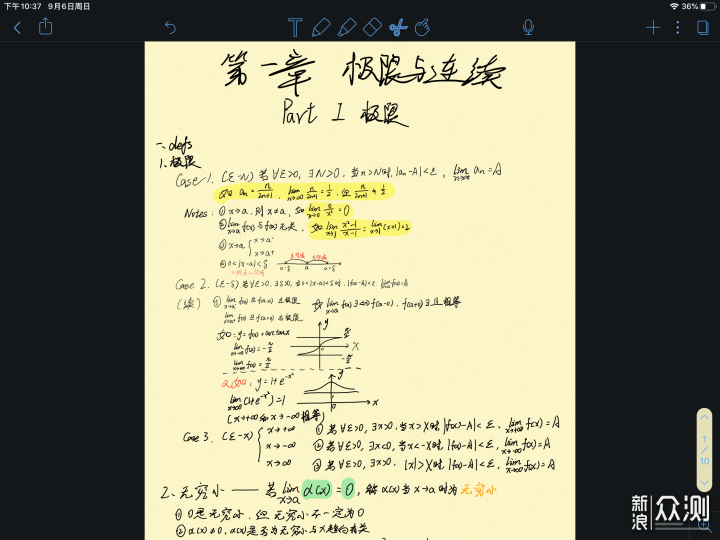 下午10:37 9月6日周日
36%
第一章 极限与连续
Part I 极限
一、defs
1. 极限
Case 1. (ε-N) 若∀ε>0, ∃N>0, 当n>N时, |an-A|<ε, lim n→∞ an=A
如 an=n/(2n+1), lim n→∞ n/(2n+1)=1/2, 但 n/(2n+1)≠1/2
Notes: ① x→a, 则x≠a,
② lim x→a f(x)与f(a)无关, 如 lim x→1 (x²-1)/(x-1)=lim x→1 (x+1)=2
③ x→a { x→a⁻
x→a⁺
④ 0<|x-a|<δ
a-δ a a+δ
Case 2. (ε-δ) 若∀ε>0, ∃δ>0, 当0<|x-a|<δ时, |f(x)-A|<ε, lim x→a f(x)=A
(续) ⑤ lim x→a⁻ f(x)≜f(a-0) 左极限 lim x→a f(x)∃⟺f(a-0), f(a+0)∃且相等
lim x→a⁺ f(x)≜f(a+0) 右极限
如: y=f(x)=arctanx
lim x→-∞ f(x)=-π/2
lim x→+∞ f(x)=π/2
y π/2 x -π/2
又如, y=1+e^(-x²)
lim x→∞ (1+e^(-x²))=1
(x→+∞和x→-∞相等)
y 0 x
Case 3. (ε-X) { x→+∞ ① 若∀ε>0, ∃X>0, 当x>X时 |f(x)-A|<ε, lim x→+∞ f(x)=A
x→-∞ ② 若∀ε>0, ∃X>0, 当x<-X时, |f(x)-A|<ε, lim x→-∞ f(x)=A
x→∞ ③ 若∀ε>0, ∃X>0, |x|>X时, |f(x)-A|<ε, lim x→∞ f(x)=A
2、无穷小 —— 若 lim x→a α(x)=0, 称α(x)当x→a时为无穷小
① 0是无穷小, 但无穷小不一定为0
② α(x)≠0, α(x)是否为无穷小与x趋向有关
1
10
新浪众测